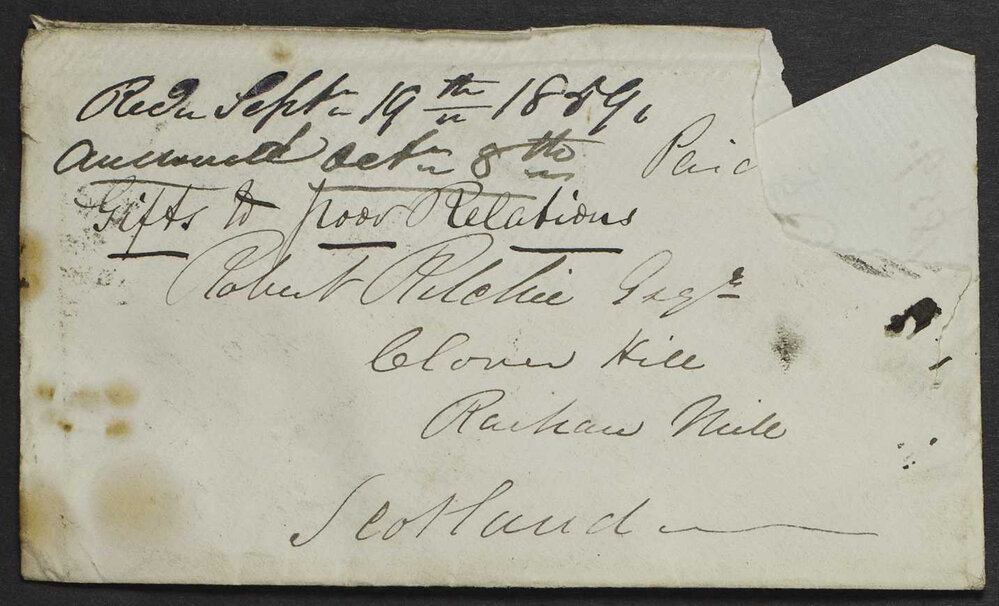 Recd Septr 19th 1859,
Answered Octr 8th
Paid
Gifts to poor Relations
Robert Ritchie Esqr
Clover Hill
Mill
Scotland